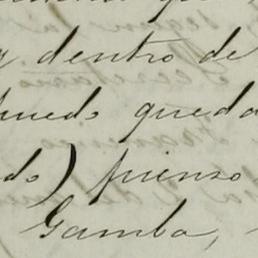 y dentro de
puedo queda
do) pienso
Gamba,